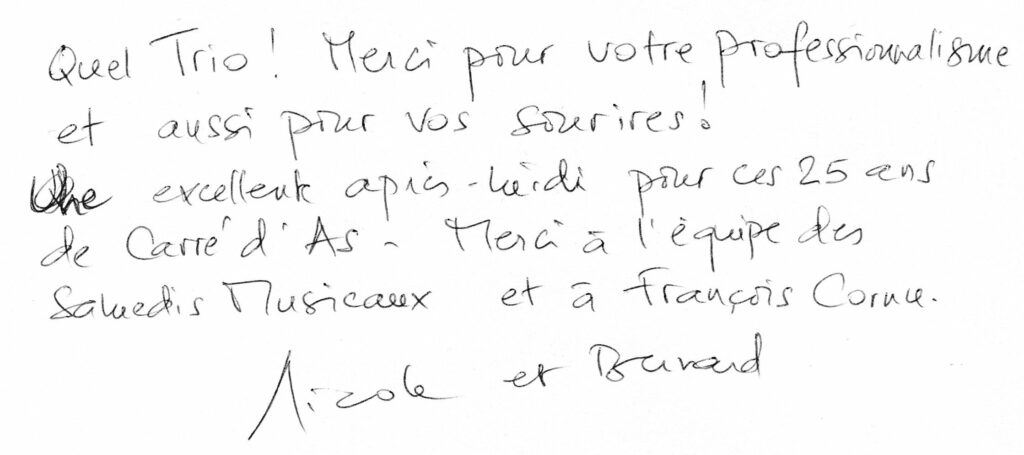 Quel Trio ! Merci pour votre professionnalisme
et aussi pour vos sourires !
Une excellente après-midi pour ces 25 ans
de Carré d'As - Merci à l'équipe des
Samedis Musicaux et à François Cornu.
Nicole et Bernard